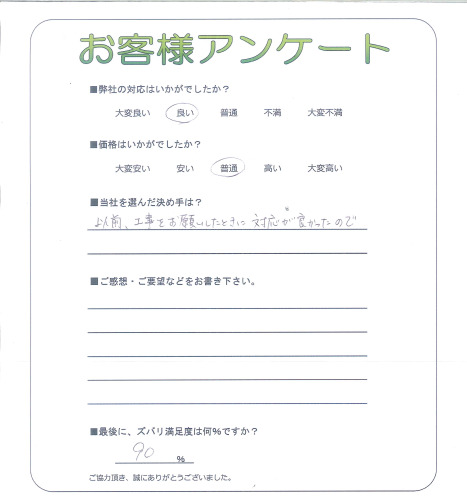 お客様アンケート
■弊社の対応はいかがでしたか？
大変良い 良い 普通 不満 大変不満
■価格はいかがでしたか？
大変安い 安い 普通 高い 大変高い
■当社を選んだ決め手は？
以前、工事をお願いしたときに 対応が良かったので
■ご感想・ご要望などをお書き下さい。
■最後に、ズバリ満足度は何％ですか？
90 %
ご協力頂き、誠にありがとうございました。